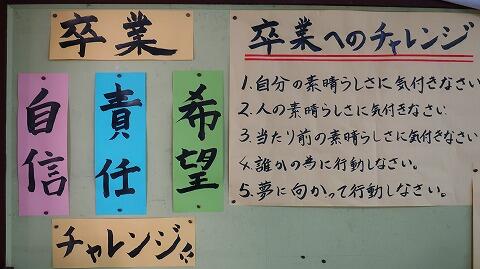 卒業
自信
責任
希望
チャレンジ!!
卒業へのチャレンジ
1.自分の素晴らしさに気付きなさい
2.人の素晴らしさに気付きなさい
3.当たり前の素晴らしさに気付きなさい
4.誰かの為に行動しなさい。
5.夢に向かって行動しなさい。